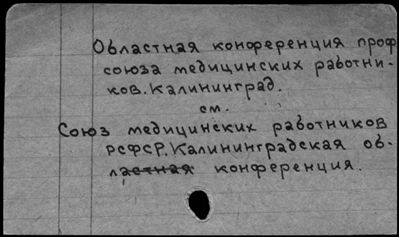 Областная конференция проф
союза медицинских работни-
ков. Калининград.
см.
Союз медицинских работников
РСФСР. Калининградская об-
ластная конференция.